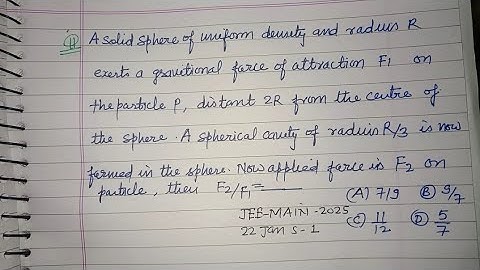 11 A solid sphere of uniform density and radius R
exerts a gravitional force of attraction F1 on
the particle P, distant 2R from the centre of
the sphere. A spherical cavity of radius R/3 is now
formed in the sphere. Now applied force is F2 on
particle, then F2/F1 = ____
(A) 7/9 (B) 9/7
JEE-MAIN-2025
22 Jan S-1 (C) 11/12 (D) 5/7